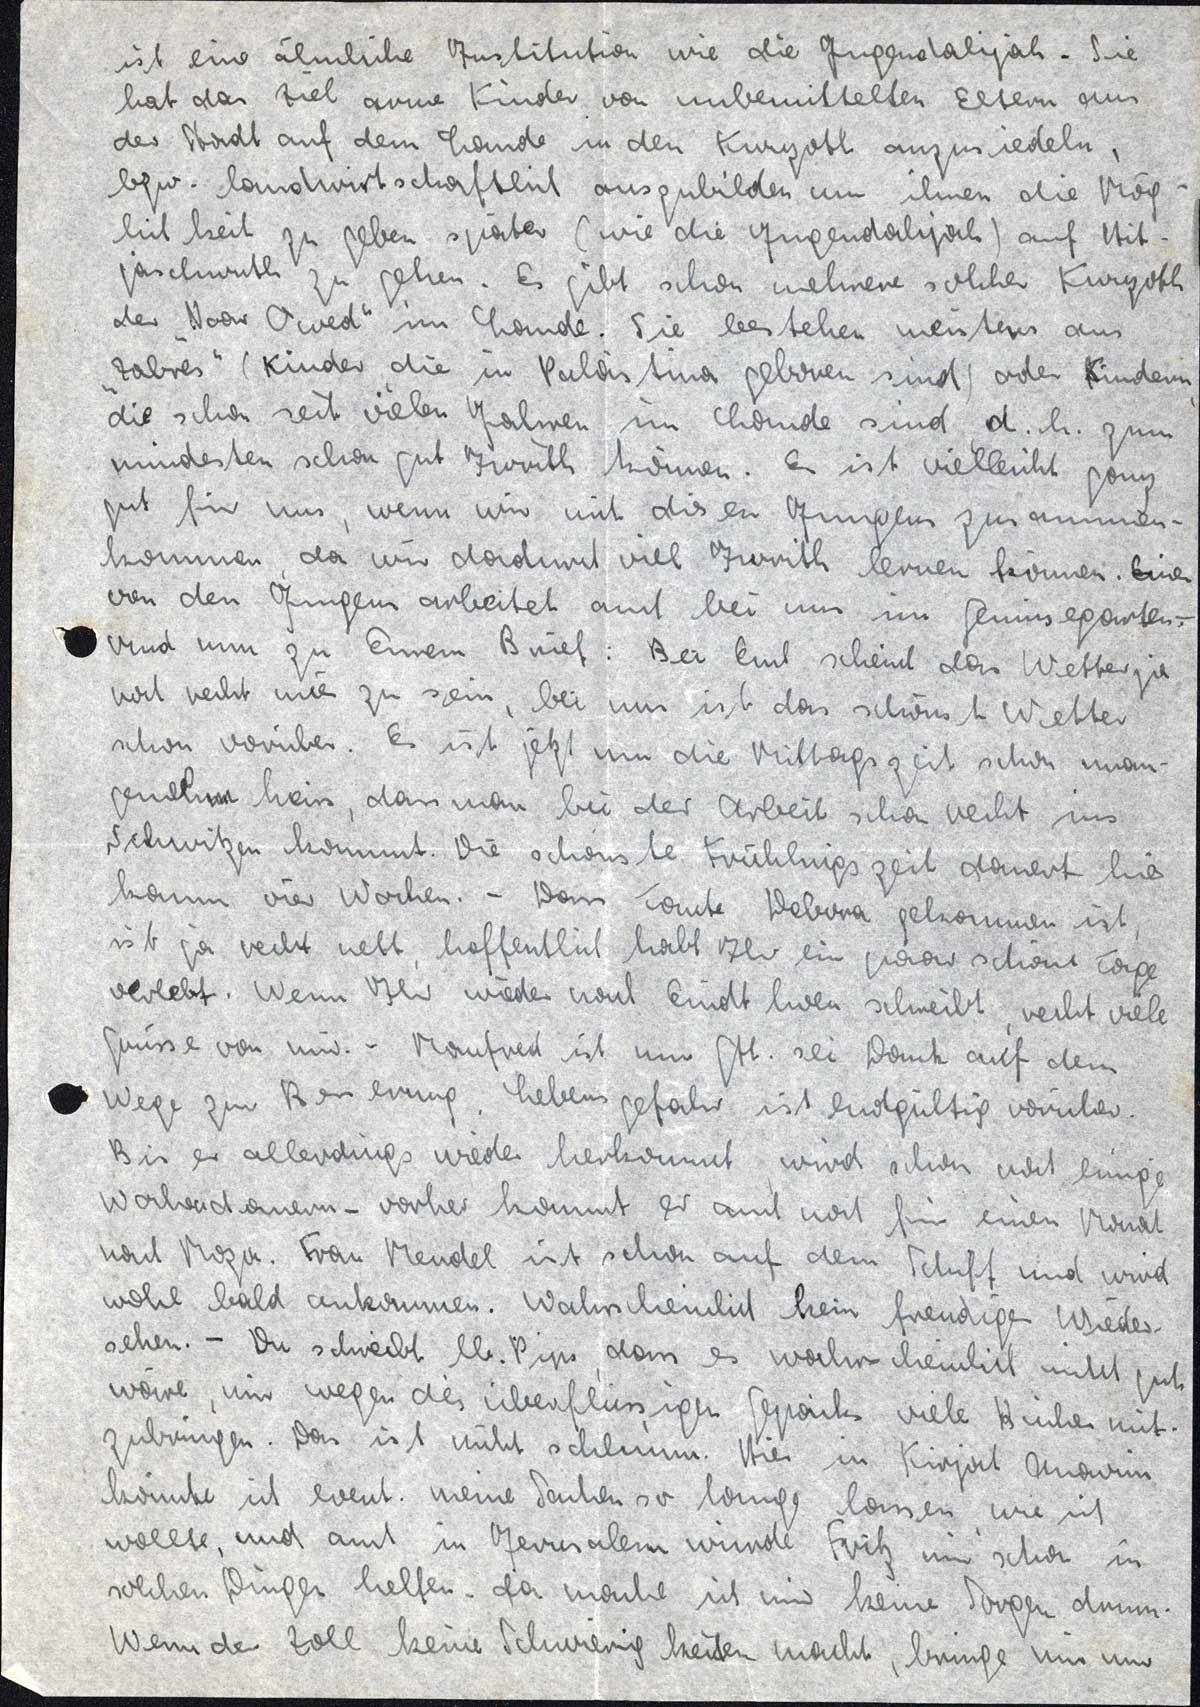 ist eine ähnliche Institution wie die Jugendalijah. Sie
hat das Ziel arme Kinder von unbemittelten Eltern aus
der Stadt auf dem Lande in den Kwuzoth anzusiedeln,
bzw. landwirtschaftlich auszubilden um ihnen die Mög-
lichkeit zu geben später (wie die Jugendalijah) auf Hit-
jaschwuth zu gehen. Es gibt schon mehrere solcher Kwuzoth
der "Noar Owed" im Lande. Sie bestehen meistens aus
"Zabres" (Kinder die in Palästina geboren sind) oder Kindern,
die schon seit vielen Jahren im Lande sind, d.h. zum
mindesten schon gut Iwrith können. Es ist vielleicht ganz
gut für uns, wenn wir mit diesen Jungens zusammen-
kommen, da wir dadurch viel Iwrith lernen können. Einer
von den Jungens arbeitet auch bei uns im Gemüsegarten.-
Und nun zu Eurem Brief: Bei Euch scheint das Wetter ja
noch recht mies zu sein, bei uns ist das schönste Wetter
schon vorüber. Es ist jetzt um die Mittagszeit schon unan-
genehm heiss, dass man bei der Arbeit schon recht ins
Schwitzen kommt. Die schönste Frühlingszeit dauert hier
kaum vier Wochen. - Dass Tante Debora gekommen ist,
ist ja recht nett, hoffentlich habt Ihr ein paar schöne Tage
verlebt. Wenn Ihr wieder nach Eindthoven schreibt, recht viele
Grüsse von mir. - Manfred ist nun Gtt. sei Dank auf dem
Wege zur Besserung, Lebensgefahr ist endgültig vorüber.
Bis er allerdings wieder herkommt, wird schon noch einige
Wochen dauern - vorher kommt er auch noch für einen Monat
nach Moza. Frau Mendel ist schon auf dem Schiff und wird
wohl bald ankommen. Wahrscheinlich kein freudiges Wieder-
sehen. - Du schreibst, lb. Pips, dass es wahrscheinlich nicht gut
wäre, mir wegen des überflüssigen Gepäcks viele Bücher mit-
zubringen. Das ist nicht schlimm. Hier in Kirjat Anawim
könnte ich event. meine Sachen so lange lassen, wie ich
wollte, und auch in Jerusalem würde Fritz mir schon in
solchen Dingen helfen. Da mache ich mir keine Sorgen drum.
Wenn der Zoll keine Schwierigkeiten macht, bringe mir nur